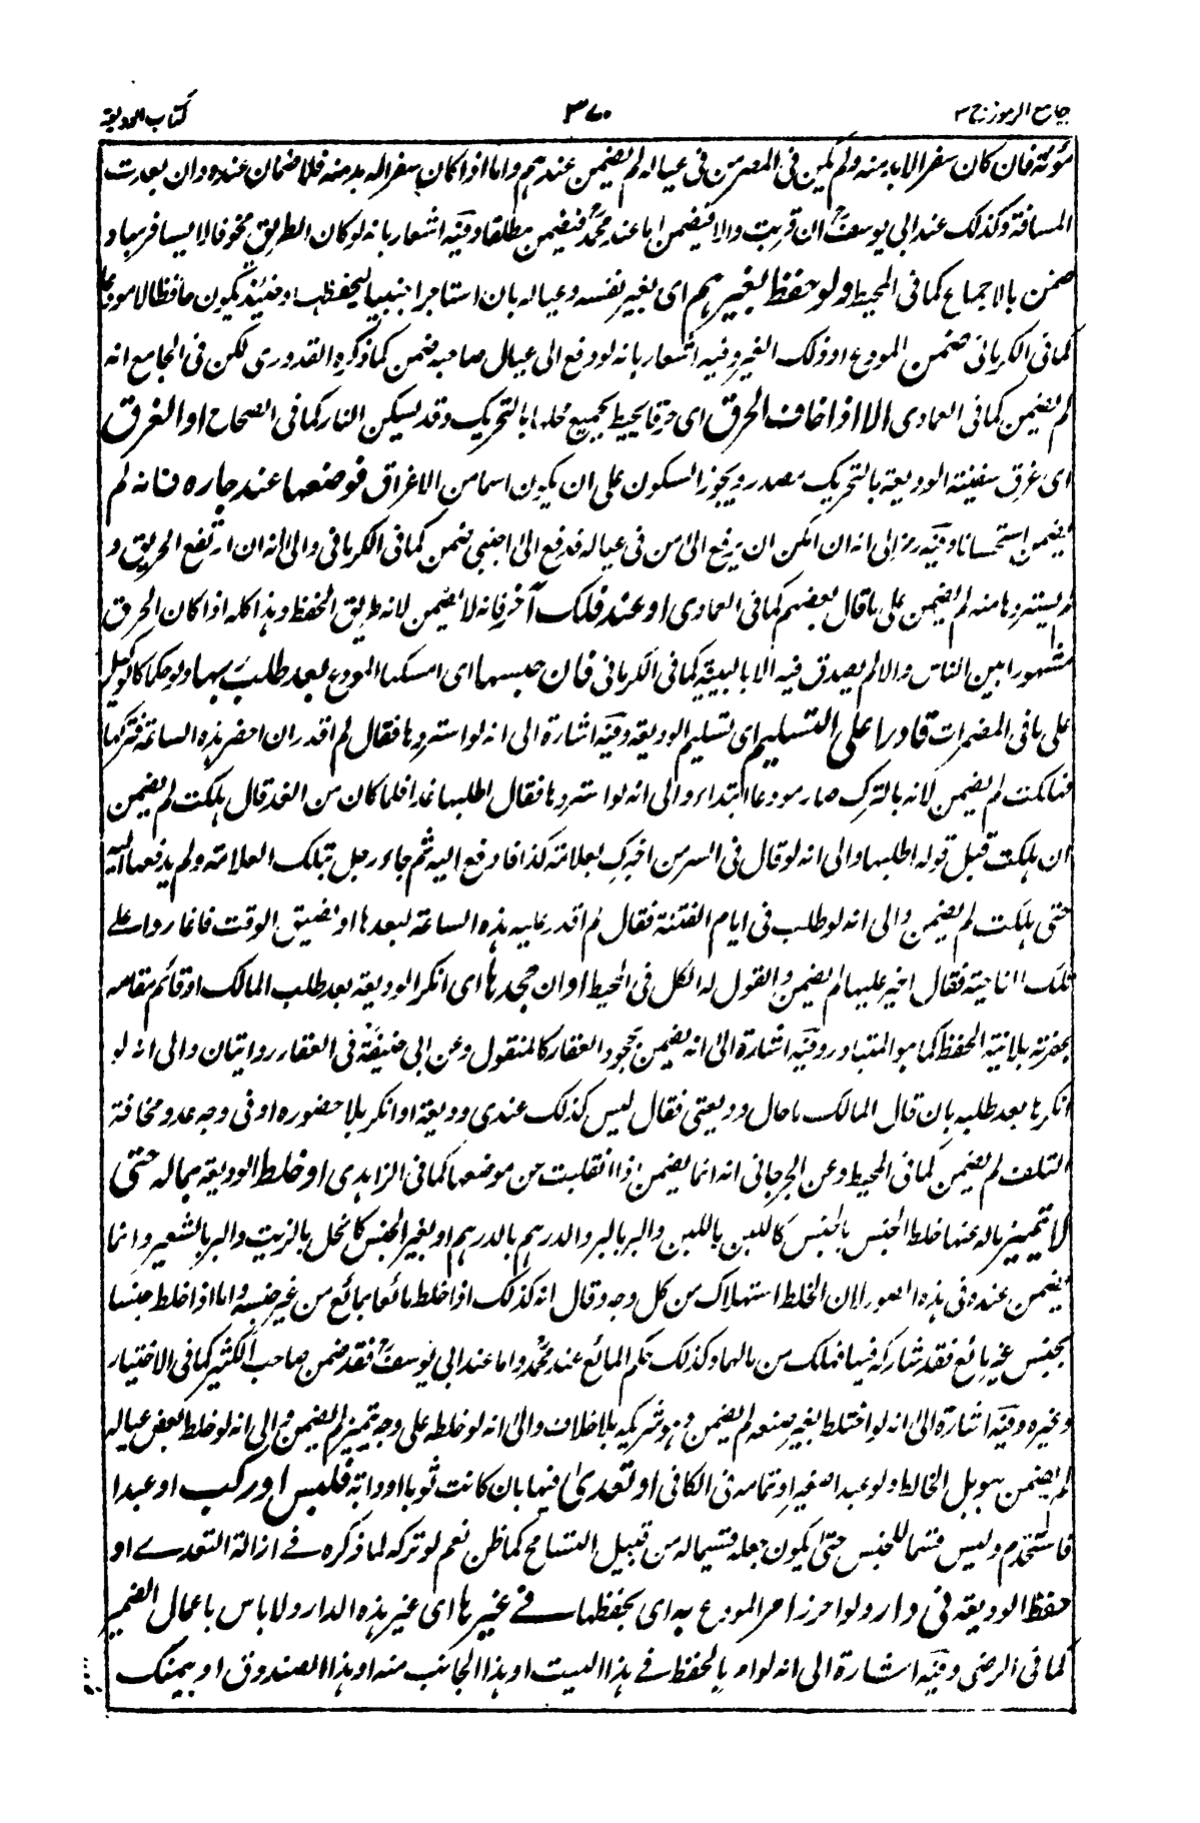 جامع الرموز ج ٣
٣٧٠
كتاب الوديعة
مؤنة فان كان سفر الابد منه ولم يكن فى المصر من فى عياله لم يضمن عندهم واما اذا كان سفر اله بد منه فلا ضمان عنده وان بعدت
المسافة وكذلك عند ابى يوسف ان قربت والا فيضمن اما عند محمد فيضمن مطلقا وفيه اشعار بانه لو كان الطريق مخوفا لا يسافر بها و
ضمن بالاجماع كما فى المحيط ولو حفظ بغيرهم اى بغير نفسه وعياله بان استاجر اجنبيا ليحفظها وحينئذ يكون حافظا لا مودعا
كما فى الكرمانى ضمن المودع او ذلك الغير وفيه اشعار بانه لو دفع الى عيال صاحبه ضمن كما ذكره القدورى لكن فى الجامع انه
لم يضمن كما فى العمادى الا اذا خاف الحرق اى حرقا يحيط بجميع محلها بالتحريك وقد يسكن النار كما فى الصحاح او الغرق
اى غرق سفينته الوديعة بالتحريك مصدر ويجوز السكون على ان يكون اسما من الاغراق فوضعها عند جاره فانه لم
يضمن استحسانا وفيه رمز الى انه ان امكن ان يدفع الى من فى عياله فدفع الى اجنبى ضمن كما فى الكرمانى والى انه ان ارتفع الحريق و
لم يستردها منه لم يضمن على ما قال بعضهم كما فى العمادى او عند فلك آخر فانه لا يضمن لانه طريق الحفظ وهذا كله اذا كان الحرق
مشهورا بين الناس والا لم يصدق فيه الا بالبينة كما فى الكرمانى فان حبسها اى امسكها المودع بعد طلب ربها ولو حكما كالوكيل
على ما فى المضمرات قادرا على التسليم اى تسليم الوديعة وفيه اشارة الى انه لو استردها فقال لم اقدر ان احضر هذه الساعة فتركها
فهلكت لم يضمن لانه بالترك صار مودعا ابتداء والى انه لو استردها فقال اطلبها غدا فلما كان من الغد قال هلكت لم يضمن
ان هلكت قبل قوله اطلبها والى انه لو قال فى السر من اخبرك بعلامة كذا فادفع اليه ثم جاء رجل بتلك العلامة ولم يدفعها اليه
حتى هلكت لم يضمن والى انه لو طلب فى ايام الفتنة فقال لم اقدر عليه هذه الساعة لبعدها او لضيق الوقت فاغاروا على
تلك الناحية فقال اغير عليها لم يضمن والقول له الكل فى المحيط او ان جحدها اى انكر الوديعة بعد طلب المالك او قائم مقامه
بحضرته بلا نية الحفظ كما هو المتبادر وفيه اشارة الى انه يضمن بجحود العقار كالمنقول وعن ابى حنيفة فى العقار روايتان والى انه لو
انكرها بعد طلبه بان قال المالك ما حال وديعتى فقال ليس كذلك عندى وديعة او انكر بلا حضوره او فى وجه عدو مخافة
التلف لم يضمن كما فى المحيط وعن الجرجانى انه انما يضمن اذا انقلبت من موضعها كما فى الزاهدى او خلط الوديعة بماله حتى
لا تتميز ماله عنها خلط الجنس بالجنس كاللبن باللبن والبر بالبر والدرهم بالدرهم او بغير الجنس كالخل بالزيت والبر بالشعير وانما
يضمن عنده فى هذه الصور لان الخلط استهلاك من كل وجه وقال انه كذلك اذا خلط مائعا بمائع من غير جنسه واما اذا خلط جنسا
بجنس غير مائع فقد شاركه فيما فهلك من مالهما وكذلك حكم المائع عند محمد واما عند ابى يوسف فقد ضمن صاحب الكثير كما فى الاختيار
وغيره وفيه اشارة الى انه لو اختلط بغير صنعه لم يضمن وهو شريكه بلا خلاف والى انه لو خلطه على وجه تميز لم يضمن والى انه لو خلط بعض عياله
لم يضمن هو بل الخالط ولو عبدا صغيرا وتمامه فى الكافى او تعدى فيها بان كانت ثوبا او دابة فلبس او ركب او عبدا
فاستخدم وليس قسما للحبس حتى يكون جعله قسيما له من قبيل التسامح كما ظن نعم لو تركه لما ذكره فى ازالة التعدے او
حفظ الوديعة فى دار ولو احرز امر المودع به اى بحفظها فى غيرها اى غير هذه الدار ولا باس باعمال الضمير
كما فى الرضى وفيه اشارة الى انه لو امر بالحفظ فى هذا البيت او هذا الجانب منه او هذا الصندوق او بيمينك